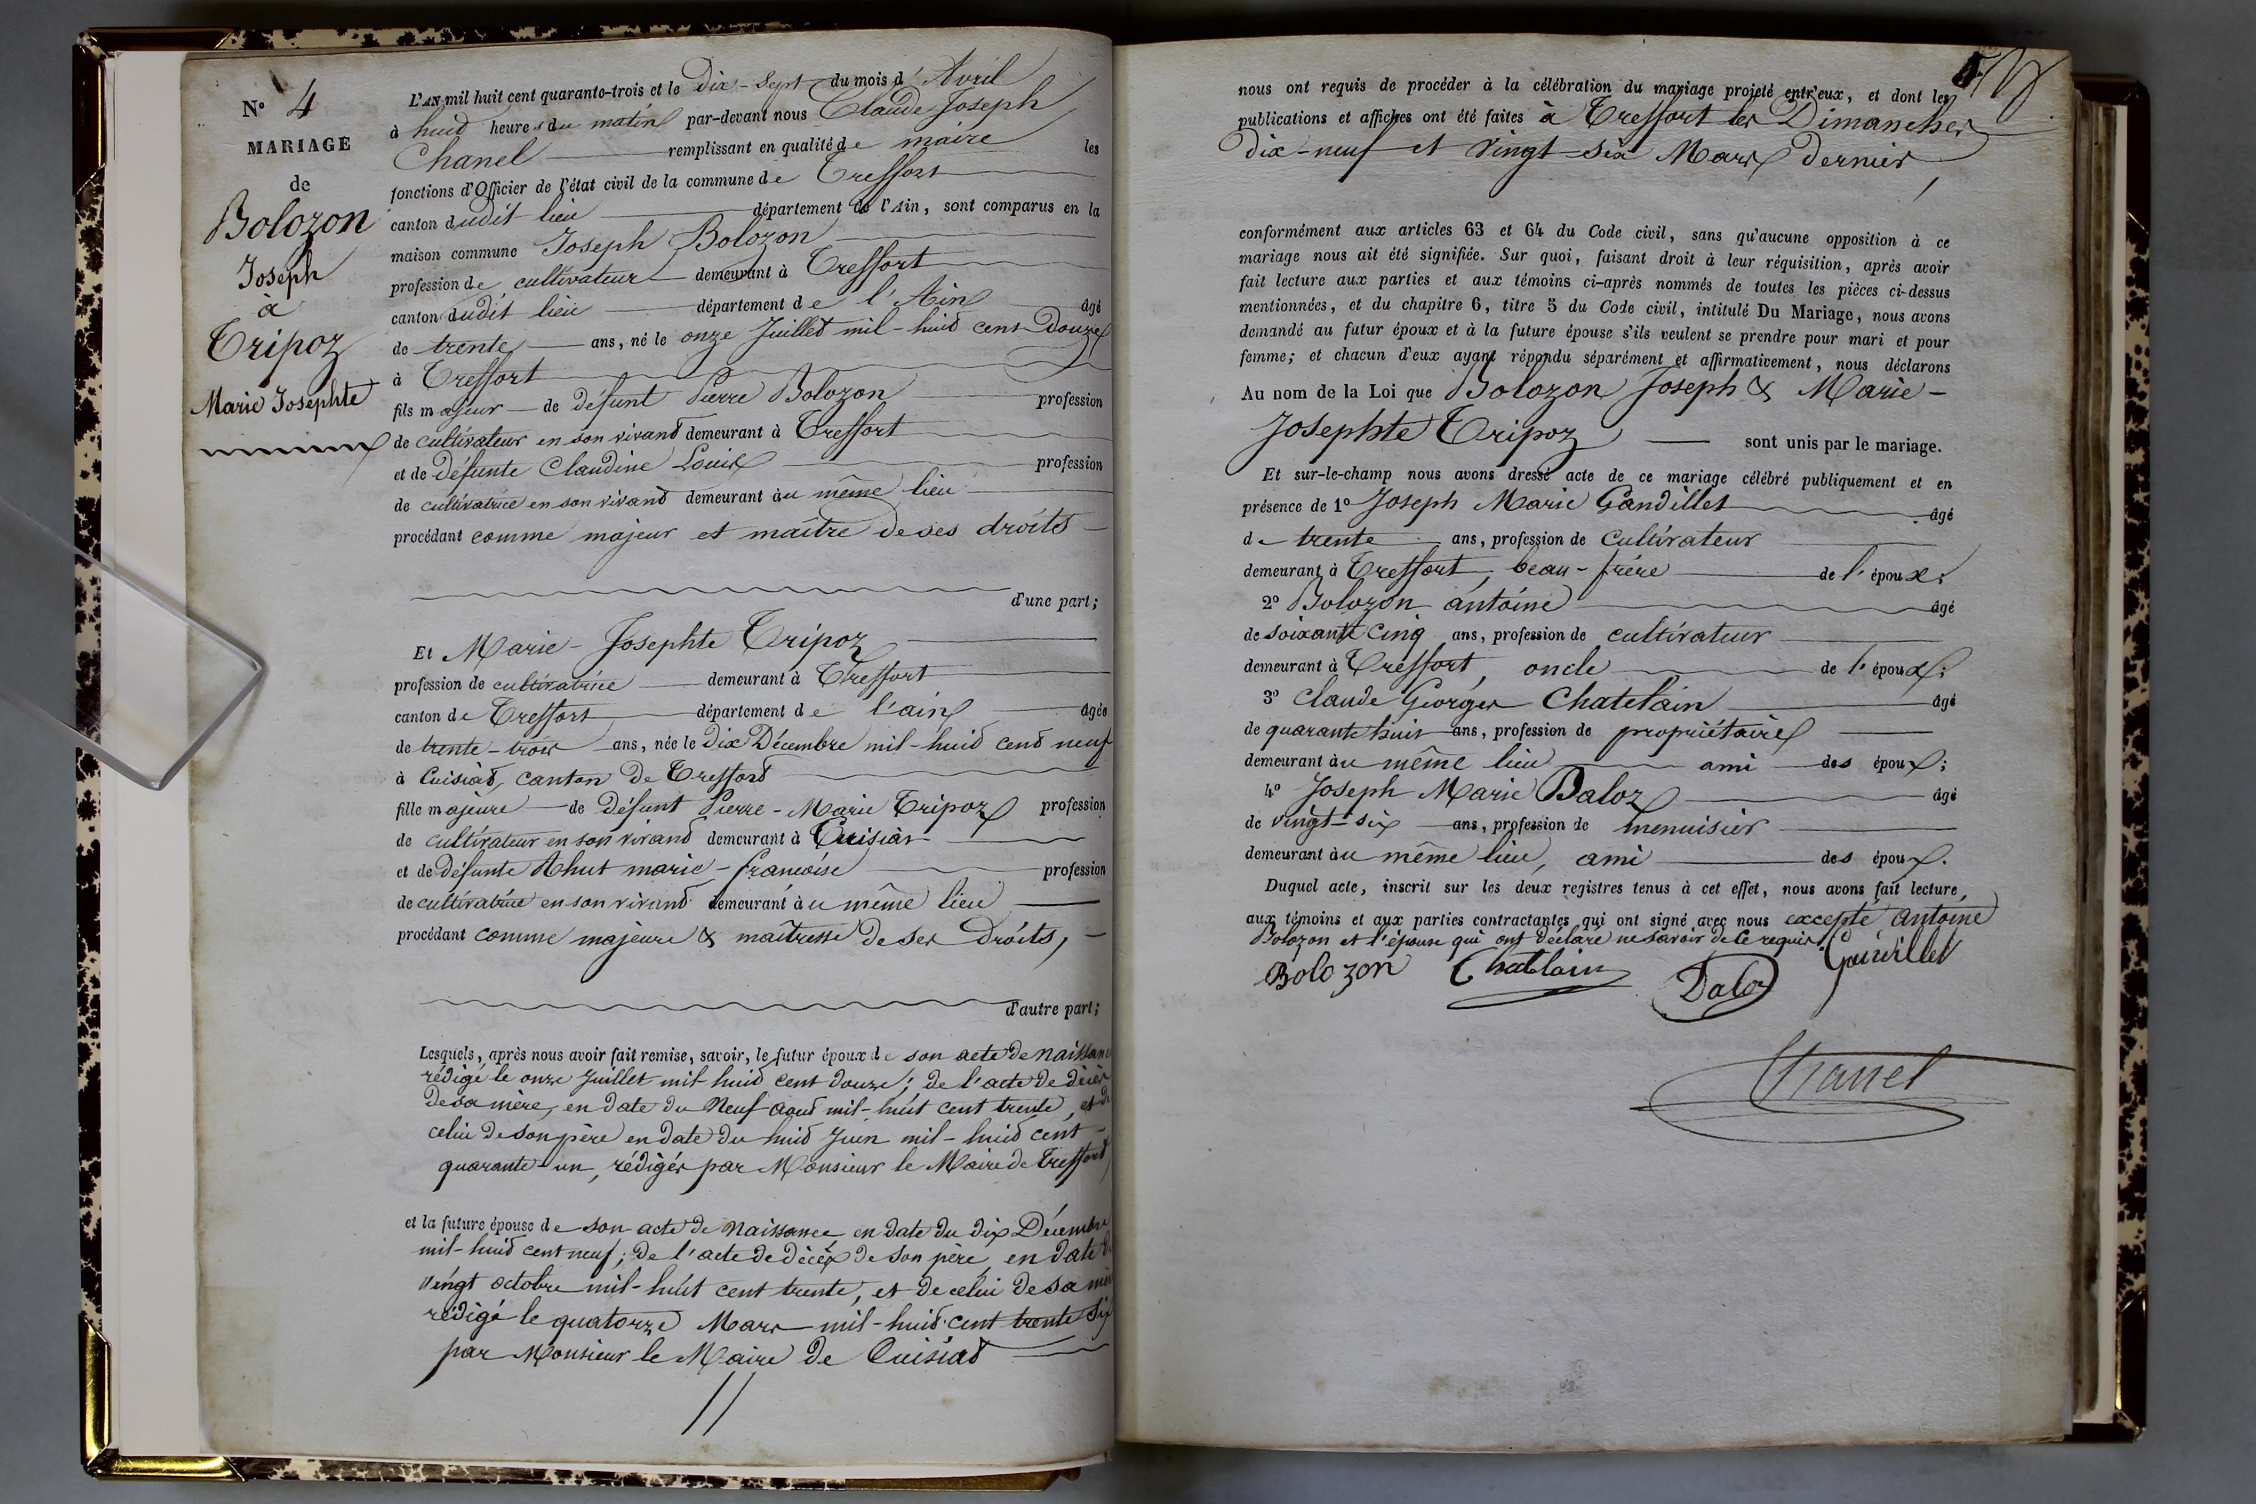 N° 4
MARIAGE
de
Bolozon
Joseph
à
Tripoz
Marie Josephte
L'AN mil huit cent quarante-trois et le Dix-Sept du mois d'Avril
à huid heures du matin par-devant nous Claude Joseph
Chanel remplissant en qualité de maire les
fonctions d'Officier de l'état civil de la commune de Treffort
canton dudit lieu département de l'Ain, sont comparus en la
maison commune Joseph Bolozon
profession de cultivateur demeurant à Treffort
canton dudit lieu département de l'Ain âgé
de trente ans, né le onze Juillet mil-huid cent Douze
à Treffort
fils majeur de défunt Pierre Bolozon profession
de cultivateur en son vivand demeurant à Treffort
et de défunte Claudine Louis profession
de cultivatrice en son vivand demeurant àu même lieu
procédant comme majeur et maitre de ses droits
d'une part;
Et Marie-Josephte Tripoz
profession de cultivatrice demeurant à Treffort
canton de Treffort département de l'ain âgée
de trente-trois ans, née le Dix Décembre mil-huid cend neuf
à Cuisiad, canton de Trefford
fille majeure de défunt Pierre-Marie Tripoz profession
de cultivateur en son vivand demeurant à Cuisiat
et de défunte Thut marie-francoise profession
de cultivatrice en son vivand demeurant àu même lieu
procédant comme majeure & maîtresse de ses Droits,
d'autre part;
Lesquels, après nous avoir fait remise, savoir, le futur époux de son acte de naissance
rédigé le onze Juillet mil-huid cent douze; de l'acte de décès
de sa mère, en date du Neuf aoud mil-huit cent trente, et de
celui de son père en date du huid Juin mil-huid cent
quarante-un, rédigés par Monsieur le Maire de Trefford
et la future épouse de son acte de Naissance en date du dix Décembre
mil-huid cent neuf; de l'acte de décès de son père, en date du
vingt octobre mil-huit cent trente, et de celui de sa mère
rédigé le quatorze Mars mil-huid cent trente six
par Monsieur le Maire de Cuisiad
nous ont requis de procéder à la célébration du mariage projeté entr'eux, et dont les
publications et affiches ont été faites à Treffort les Dimanches
Dix-neuf et vingt-six Mars dernier
conformément aux articles 63 et 64 du Code civil, sans qu'aucune opposition à ce
mariage nous ait été signifiée. Sur quoi, faisant droit à leur réquisition, après avoir
fait lecture aux parties et aux témoins ci-après nommés de toutes les pièces ci-dessus
mentionnées, et du chapitre 6, titre 5 du Code civil, intitulé Du Mariage, nous avons
demandé au futur époux et à la future épouse s'ils veulent se prendre pour mari et pour
femme; et chacun d'eux ayant répondu séparément et affirmativement, nous déclarons
Au nom de la Loi que Bolozon Joseph & Marie-
Josephte Tripoz sont unis par le mariage.
Et sur-le-champ nous avons dressé acte de ce mariage célébré publiquement et en
présence de 1° Joseph Marie Gandillet âgé
de trente ans, profession de Cultivateur
demeurant à Treffort, beau-frère de l'époux;
2° Bolozon antoine âgé
de soixante cinq ans, profession de cultivateur
demeurant à Treffort, oncle de l'époux;
3° Claude Georges Chatelain âgé
de quarante huit ans, profession de propriétaire
demeurant àu même lieu ami des époux;
4° Joseph Marie Daloz âgé
de vingt-six ans, profession de menuisier
demeurant àu même lieu, ami des époux.
Duquel acte, inscrit sur les deux registres tenus à cet effet, nous avons fait lecture,
aux témoins et aux parties contractantes qui ont signé avec nous excepté antoine
Bolozon et l'épouse qui ont déclaré ne savoir de ce requis
Bolozon Chatelain Daloz Gandillet
Chanel